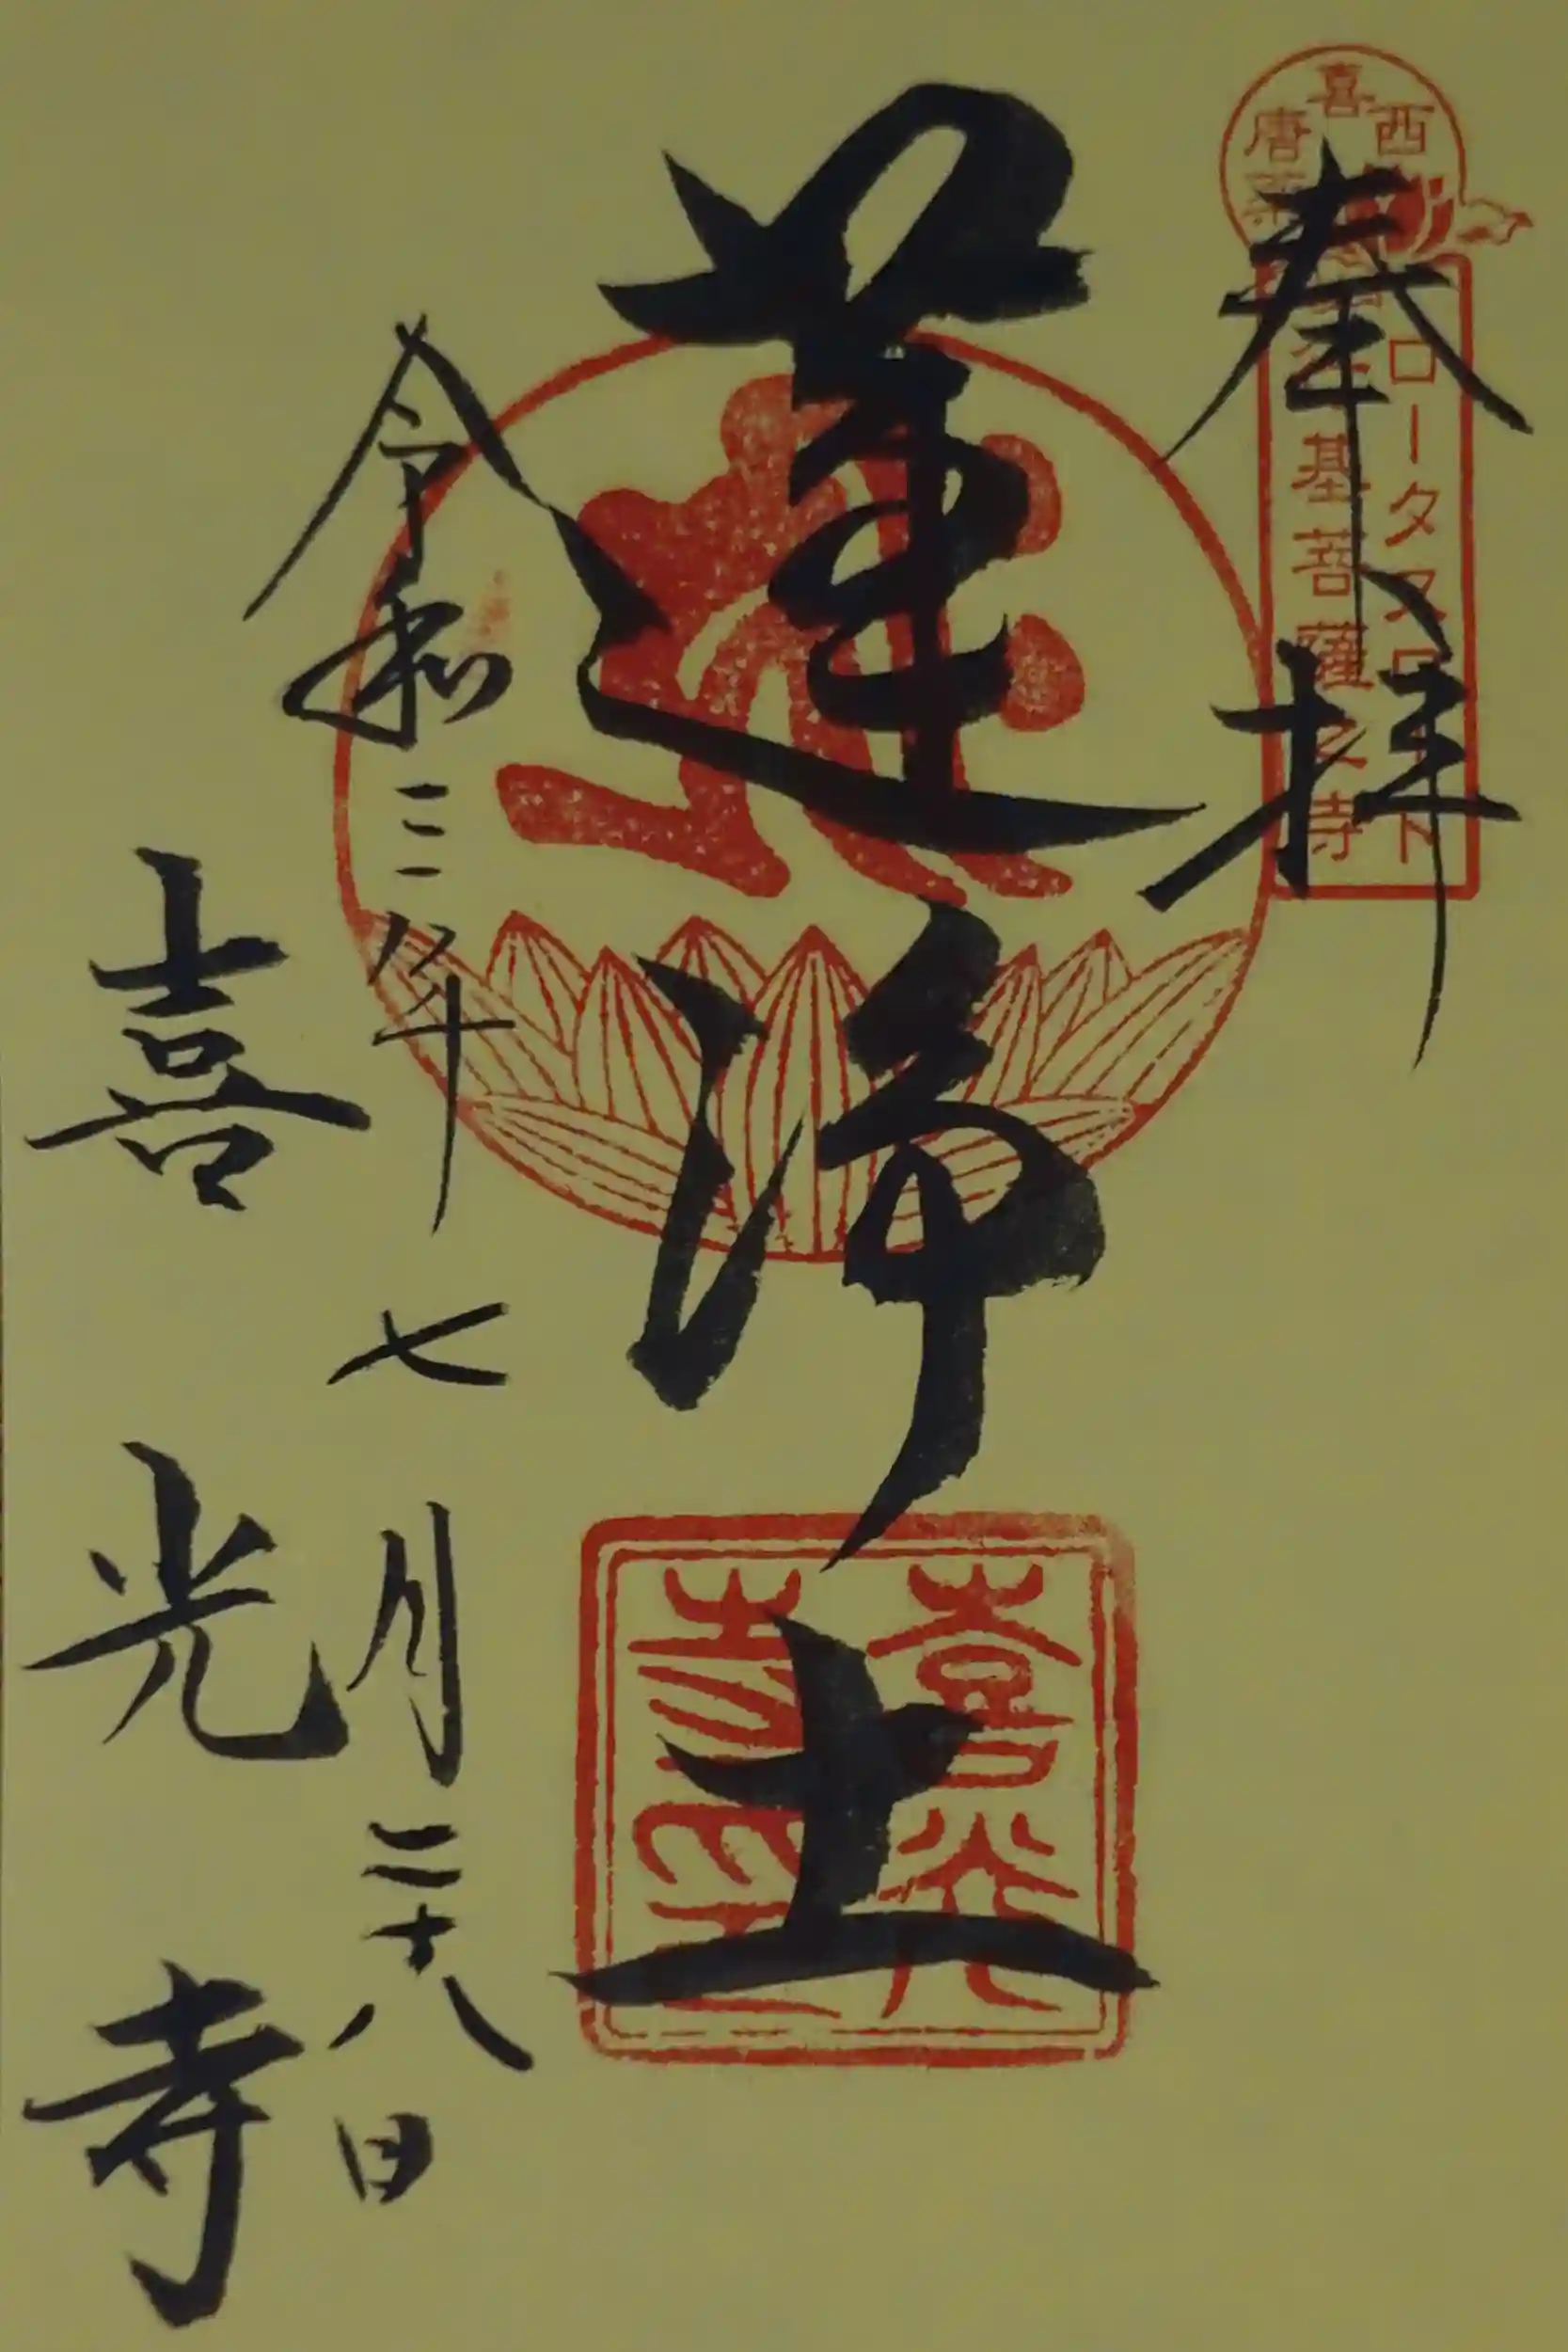 奉拝
ロータスロード
基菩薩之寺
蓮浄土
喜光
寺印
令和三年七月二十八日
喜光寺